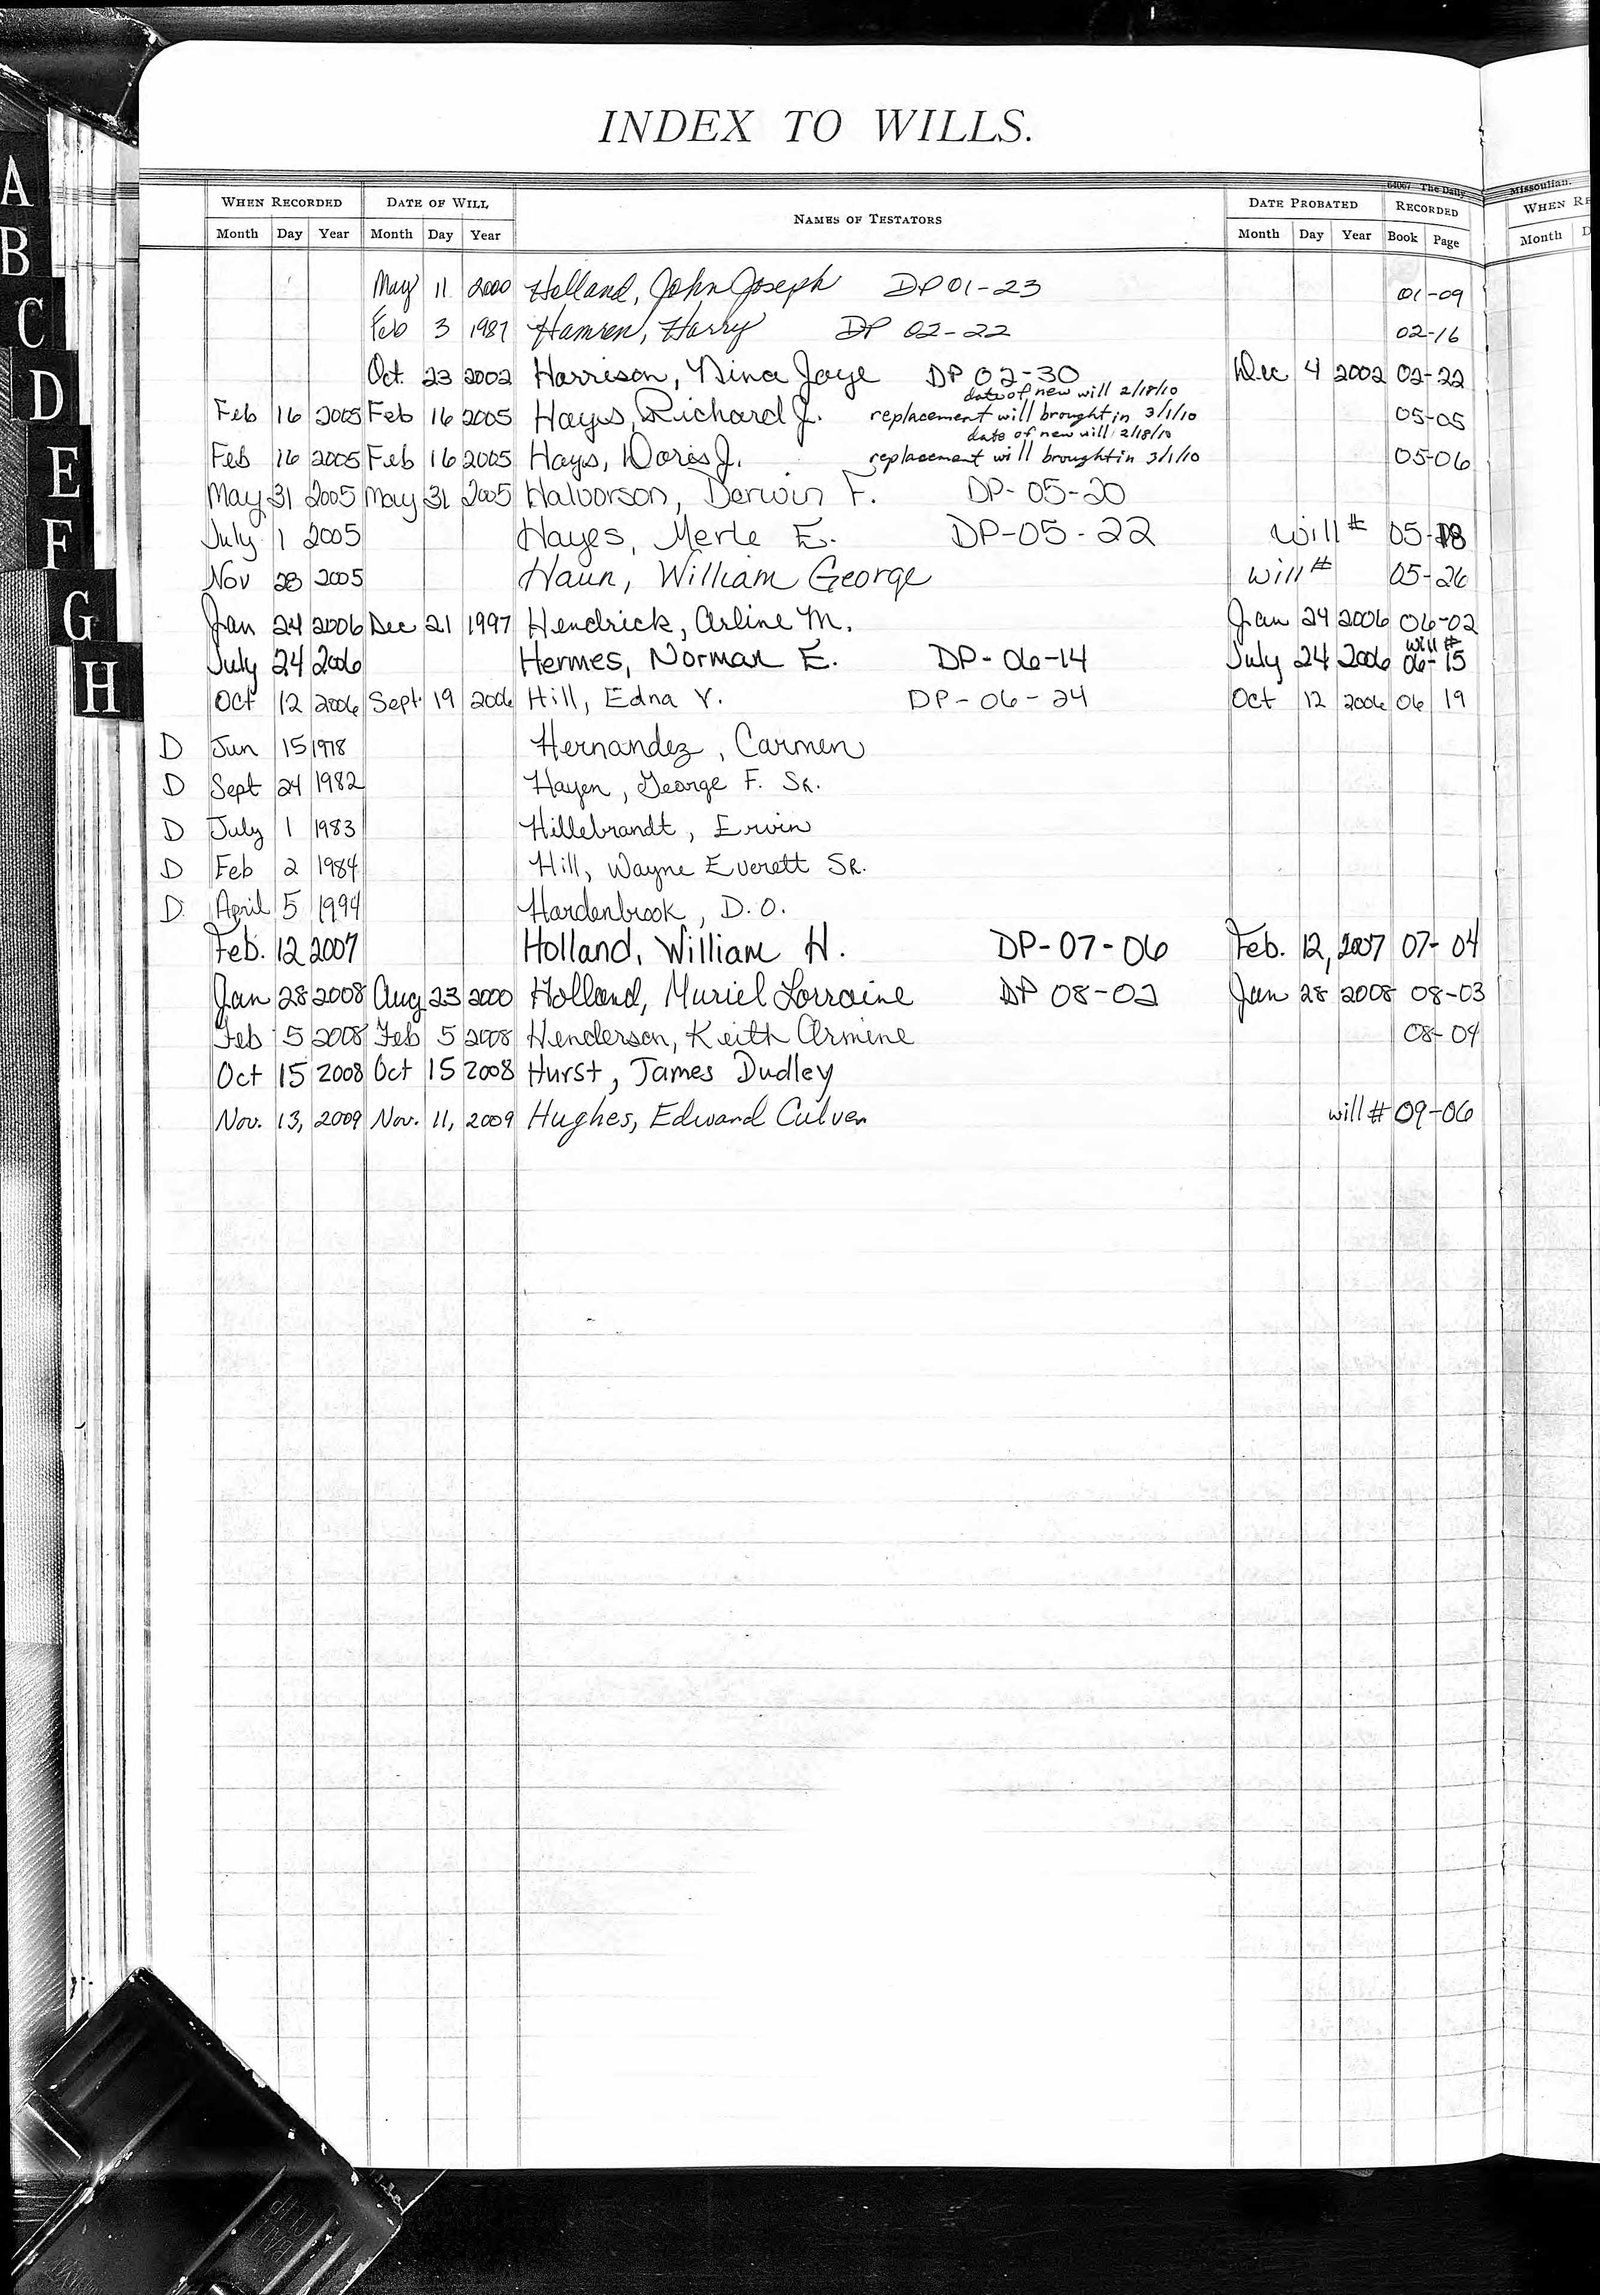 INDEX TO WILLS.
64067 The Daily Missoulian.
WHEN RECORDED DATE OF WILL NAMES OF TESTATORS DATE PROBATED RECORDED WHEN RE
Month Day Year Month Day Year Month Day Year Book Page Month D
May 11 2000 Holland, John Joseph DP 01-23 01-09
Feb 3 1987 Hamren, Harry DP 02-22 02-16
Oct. 23 2002 Harrison, Nina Jaye DP 02-30 Dec 4 2002 02-22
date of new will 2/18/10
Feb 16 2005 Feb 16 2005 Hays, Richard J. replacement will brought in 3/1/10 05-05
date of new will 2/18/10
Feb 16 2005 Feb 16 2005 Hays, Doris J. replacement will brought in 3/1/10 05-06
May 31 2005 May 31 2005 Halvorson, Derwin F. DP-05-20
July 1 2005 Hayes, Merle E. DP-05-22 will # 05-18
Nov 28 2005 Haun, William George will # 05-26
Jan 24 2006 Dec 21 1997 Hendrick, Arline M. Jan 24 2006 06-02
will #
July 24 2006 Hermes, Norman E. DP-06-14 July 24 2006 06-15
Oct 12 2006 Sept 19 2006 Hill, Edna V. DP-06-24 Oct 12 2006 06 19
D Jun 15 1978 Hernandez, Carmen
D Sept 24 1982 Hayen, George F. Sr.
D July 1 1983 Hillebrandt, Ervin
D Feb 2 1984 Hill, Wayne Everett Sr.
D April 5 1994 Hardenbrook, D.O.
Feb. 12 2007 Holland, William H. DP-07-06 Feb. 12, 2007 07-04
Jan 28 2008 Aug 23 2000 Holland, Muriel Lorraine DP 08-02 Jan 28 2008 08-03
Feb 5 2008 Feb 5 2008 Henderson, Keith Armine 08-04
Oct 15 2008 Oct 15 2008 Hurst, James Dudley
Nov. 13, 2009 Nov. 11, 2009 Hughes, Edward Culver will # 09-06
A
B
C
D
E
F
G
H